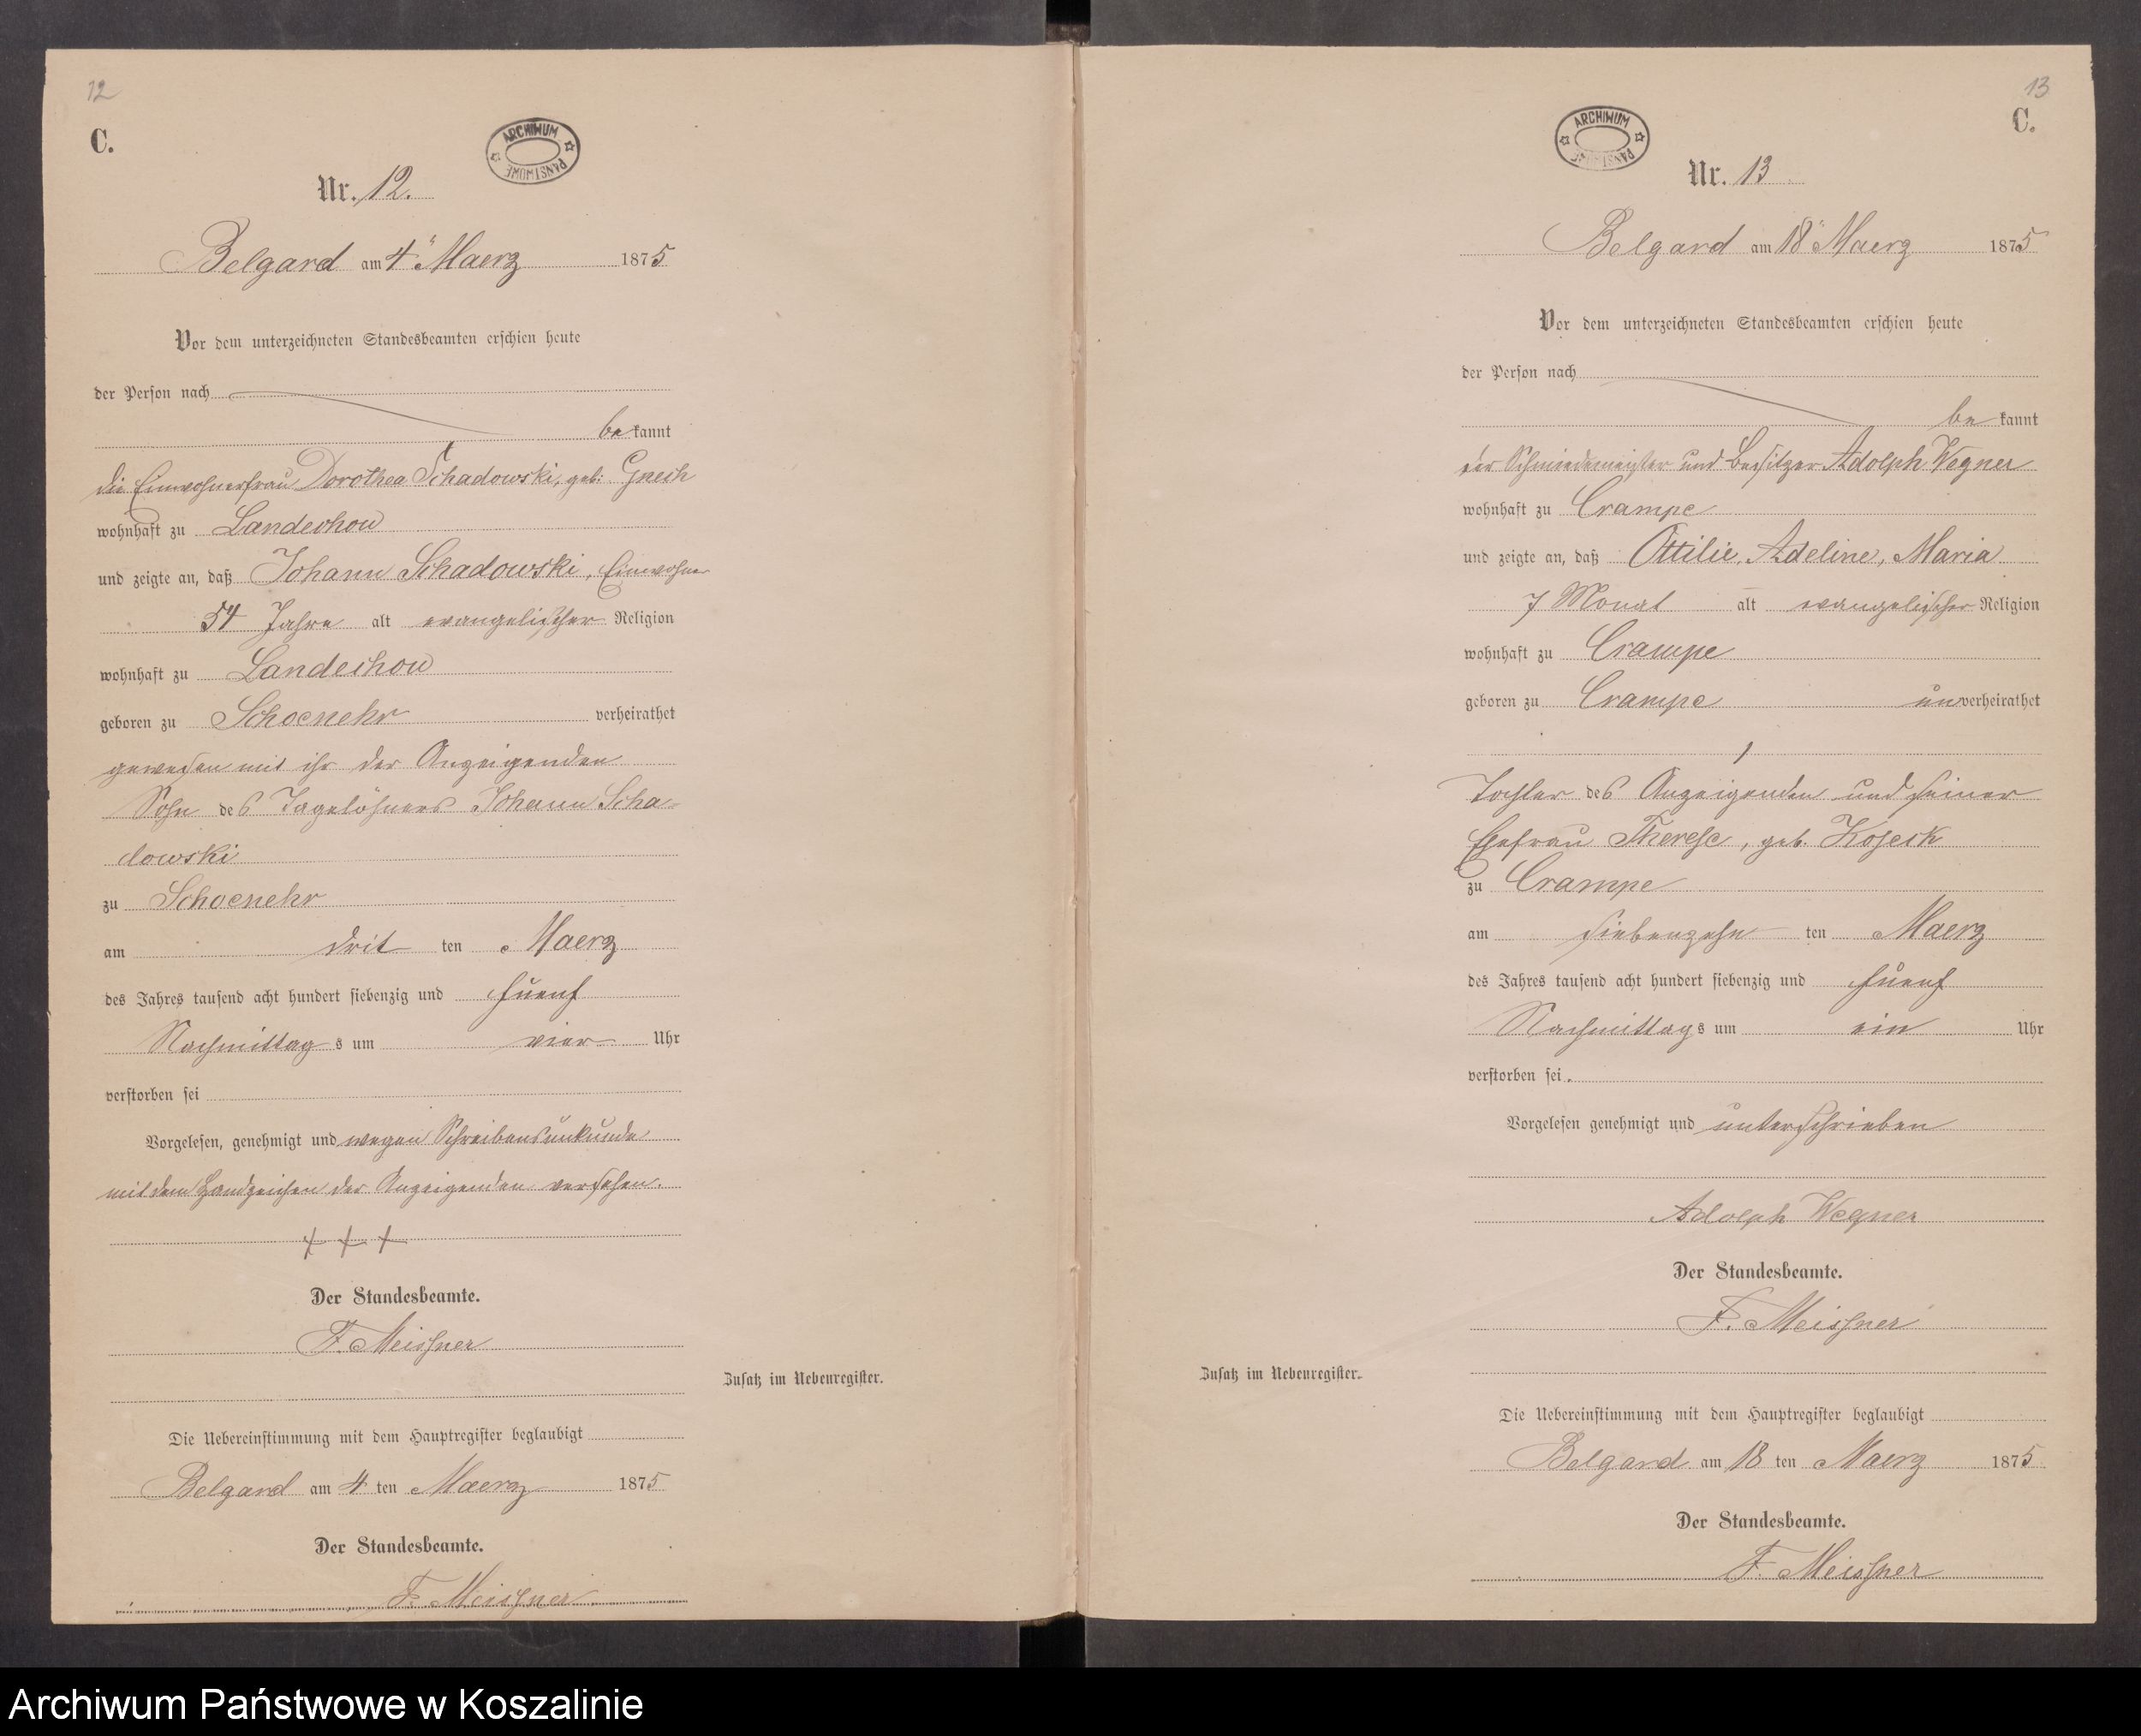 12
C.
ARCHIWUM PAŃSTWOWE
Nr. 12.
Belgard am 4ᵗ Maerz 1875
Vor dem unterzeichneten Standesbeamten erschien heute
der Person nach
be kannt
die Einwohnerfrau Dorothea Schadowski, geb: Gnech
wohnhaft zu Landechow
und zeigte an, daß Johann Schadowski, Einwohner
54 Jahre alt evangelischer Religion
wohnhaft zu Landechow
geboren zu Schoenehr verheirathet
gewesen mit ihr der Anzeigenden
Sohn des Tagelöhners Johann Scha-
dowski
zu Schoenehr
am drit ten Maerz
des Jahres tausend acht hundert siebenzig und fuenf
Nachmittag s um vier Uhr
verstorben sei
Vorgelesen, genehmigt und wegen Schreibensunkunde
mit dem Handzeichen der Anzeigenden versehen.
+ + +
Der Standesbeamte.
F. Meissner
Zusatz im Nebenregister.
Die Uebereinstimmung mit dem Hauptregister beglaubigt
Belgard am 4 ten Maerz 1875
Der Standesbeamte.
F. Meissner
13
C.
ARCHIWUM PAŃSTWOWE
Nr. 13
Belgard am 18ᵗ Maerz 1875
Vor dem unterzeichneten Standesbeamten erschien heute
der Person nach
be kannt
der Schmiedemeister und Besitzer Adolph Wegner
wohnhaft zu Crampe
und zeigte an, daß Ottilie, Adeline, Maria
7 Monat alt evangelischer Religion
wohnhaft zu Crampe
geboren zu Crampe unverheirathet
Tochter des Anzeigenden und seiner
Ehefrau Therese, geb. Koseck
zu Crampe
am siebenzehn ten Maerz
des Jahres tausend acht hundert siebenzig und fuenf
Nachmittag s um ein Uhr
verstorben sei.
Vorgelesen genehmigt und unterschrieben
Adolph Wegner
Der Standesbeamte.
F. Meissner
Zusatz im Nebenregister.
Die Uebereinstimmung mit dem Hauptregister beglaubigt
Belgard am 18 ten Maerz 1875
Der Standesbeamte.
F. Meissner
Archiwum Państwowe w Koszalinie